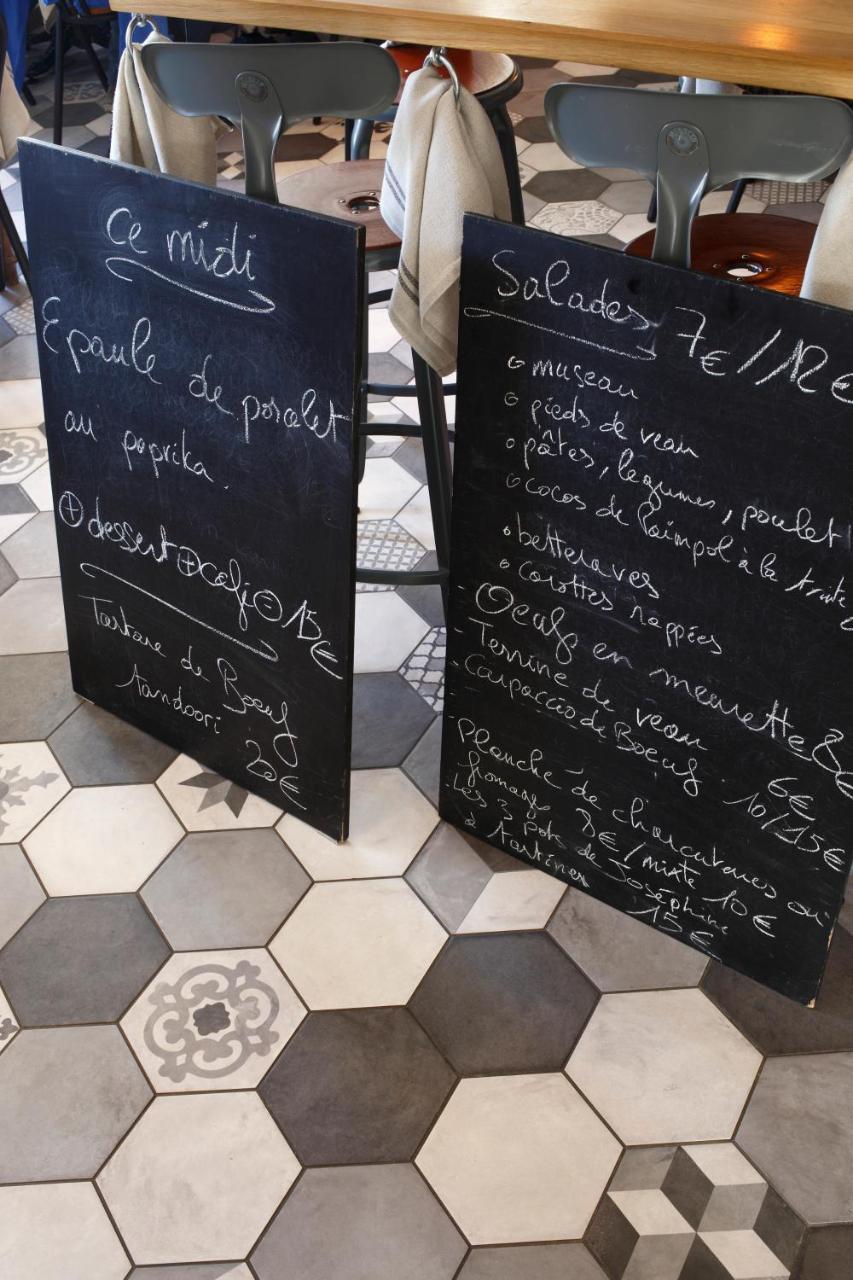 Ce midi
Epaule de porcelet
au paprika.
⊕ dessert ⊕ café ⊖ 15€
Tartare de Boeuf
tandoori
20€
Salades 7€/12€
o museau
o pieds de veau
o pâtes, legumes, poulet
o cocos de Paimpol à la truite
o betteraves
o carottes rappées
Oeufs en meurette 8€
Terrine de veau 6€
Carpaccio de Boeuf 10/15€
planche de charcuteries ou
fromage 8€/mixte 10€
Les 3 pots de Joséphine
tartines 15€